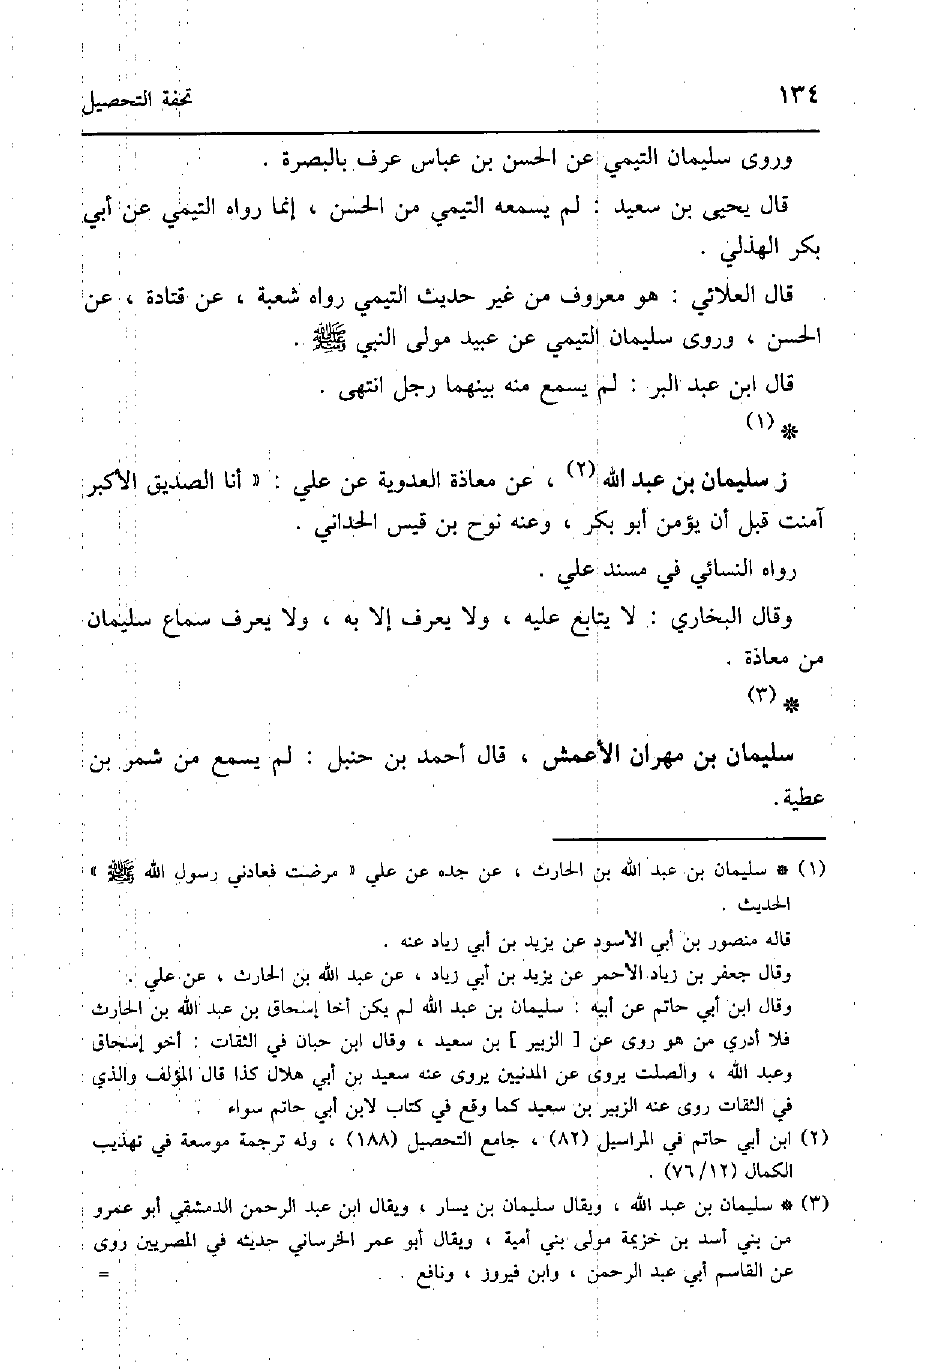 ١٣٤ تحفة التحصيل
وروى سليمان التيمي عن الحسن بن عباس عرف بالبصرة .
قال يحيى بن سعيد : لم يسمعه التيمي من الحسن ، إنما رواه التيمي عن أبي
بكر الهذلي .
قال العلائي : هو معروف من غير حديث التيمي رواه شعبة ، عن قتادة ، عن
الحسن ، وروى سليمان التيمي عن عبيد مولى النبي ﷺ .
قال ابن عبد البر : لم يسمع منه بينهما رجل انتهى .
* (١)
ز سليمان بن عبد الله (٢) ، عن معاذة العدوية عن علي : « أنا الصديق الأكبر
آمنت قبل أن يؤمن أبو بكر ، وعنه نوح بن قيس الحداني .
رواه النسائي في مسند علي .
وقال البخاري : لا يتابع عليه ، ولا يعرف إلا به ، ولا يعرف سماع سليمان
من معاذة .
* (٣)
سليمان بن مهران الأعمش ، قال أحمد بن حنبل : لم يسمع من شمر بن
عطية .
(١) * سليمان بن عبد الله بن الحارث ، عن جده عن علي « مرضت فعادني رسول الله ﷺ »
الحديث .
قاله منصور بن أبي الأسود عن يزيد بن أبي زياد عنه .
وقال جعفر بن زياد الأحمر عن يزيد بن أبي زياد ، عن عبد الله بن الحارث ، عن علي .
وقال ابن أبي حاتم عن أبيه : سليمان بن عبد الله لم يكن أخا إسحاق بن عبد الله بن الحارث
فلا أدري من هو روى عن [ الزبير ] بن سعيد ، وقال ابن حبان في الثقات : أخو إسحاق
وعبد الله ، والصلت يروي عن المدنيين يروى عنه سعيد بن أبي هلال كذا قال المؤلف والذي
في الثقات روى عنه الزبير بن سعيد كما وقع في كتاب لابن أبي حاتم سواء
(٢) ابن أبي حاتم في المراسيل (٨٢) ، جامع التحصيل (١٨٨) ، وله ترجمة موسعة في تهذيب
الكمال (٧٦/١٢) .
(٣) * سليمان بن عبد الله ، ويقال سليمان بن يسار ، ويقال ابن عبد الرحمن الدمشقي أبو عمرو
من بني أسد بن خزيمة مولى بني أمية ، ويقال أبو عمر الخرساني حديثه في المصريين روى
عن القاسم أبي عبد الرحمن ، وابن فيروز ، ونافع . =